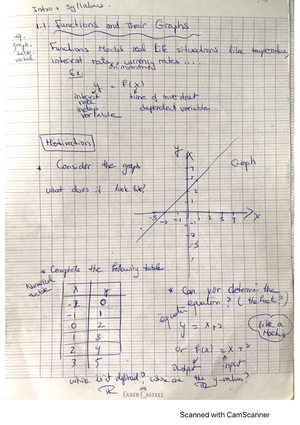 Intro + Syllabus
eg. graph, table verbal
1.1 Functions and Their Graphs
Functions Model real life situations like temperature,
interest rates, currency rates ....
Ex
in investment
y = f(x)
interest rate
time of investment
variable
dependent variable
Motivation
* Consider the graph
what does it look like?
y
Graph
x
* Complete the following table
Numerical table
x y
-2 0
-1 1
0 2
1 3
2 4
3 5
* Can you determine the
equation? (the funct?)
equation
y = x+2
or f(x) = x+2
output input
Like a Machine
where is it defined? what are the y-values?
ℝ ℝ
FABER-CASTELL
Scanned with CamScanner